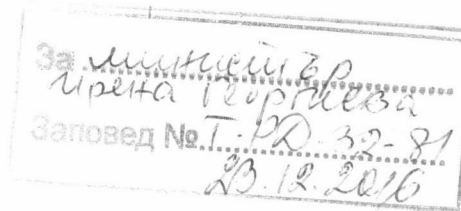 За министър
Ирена Георгиева
Заповед № Т-РД-32-81
23.12.2016